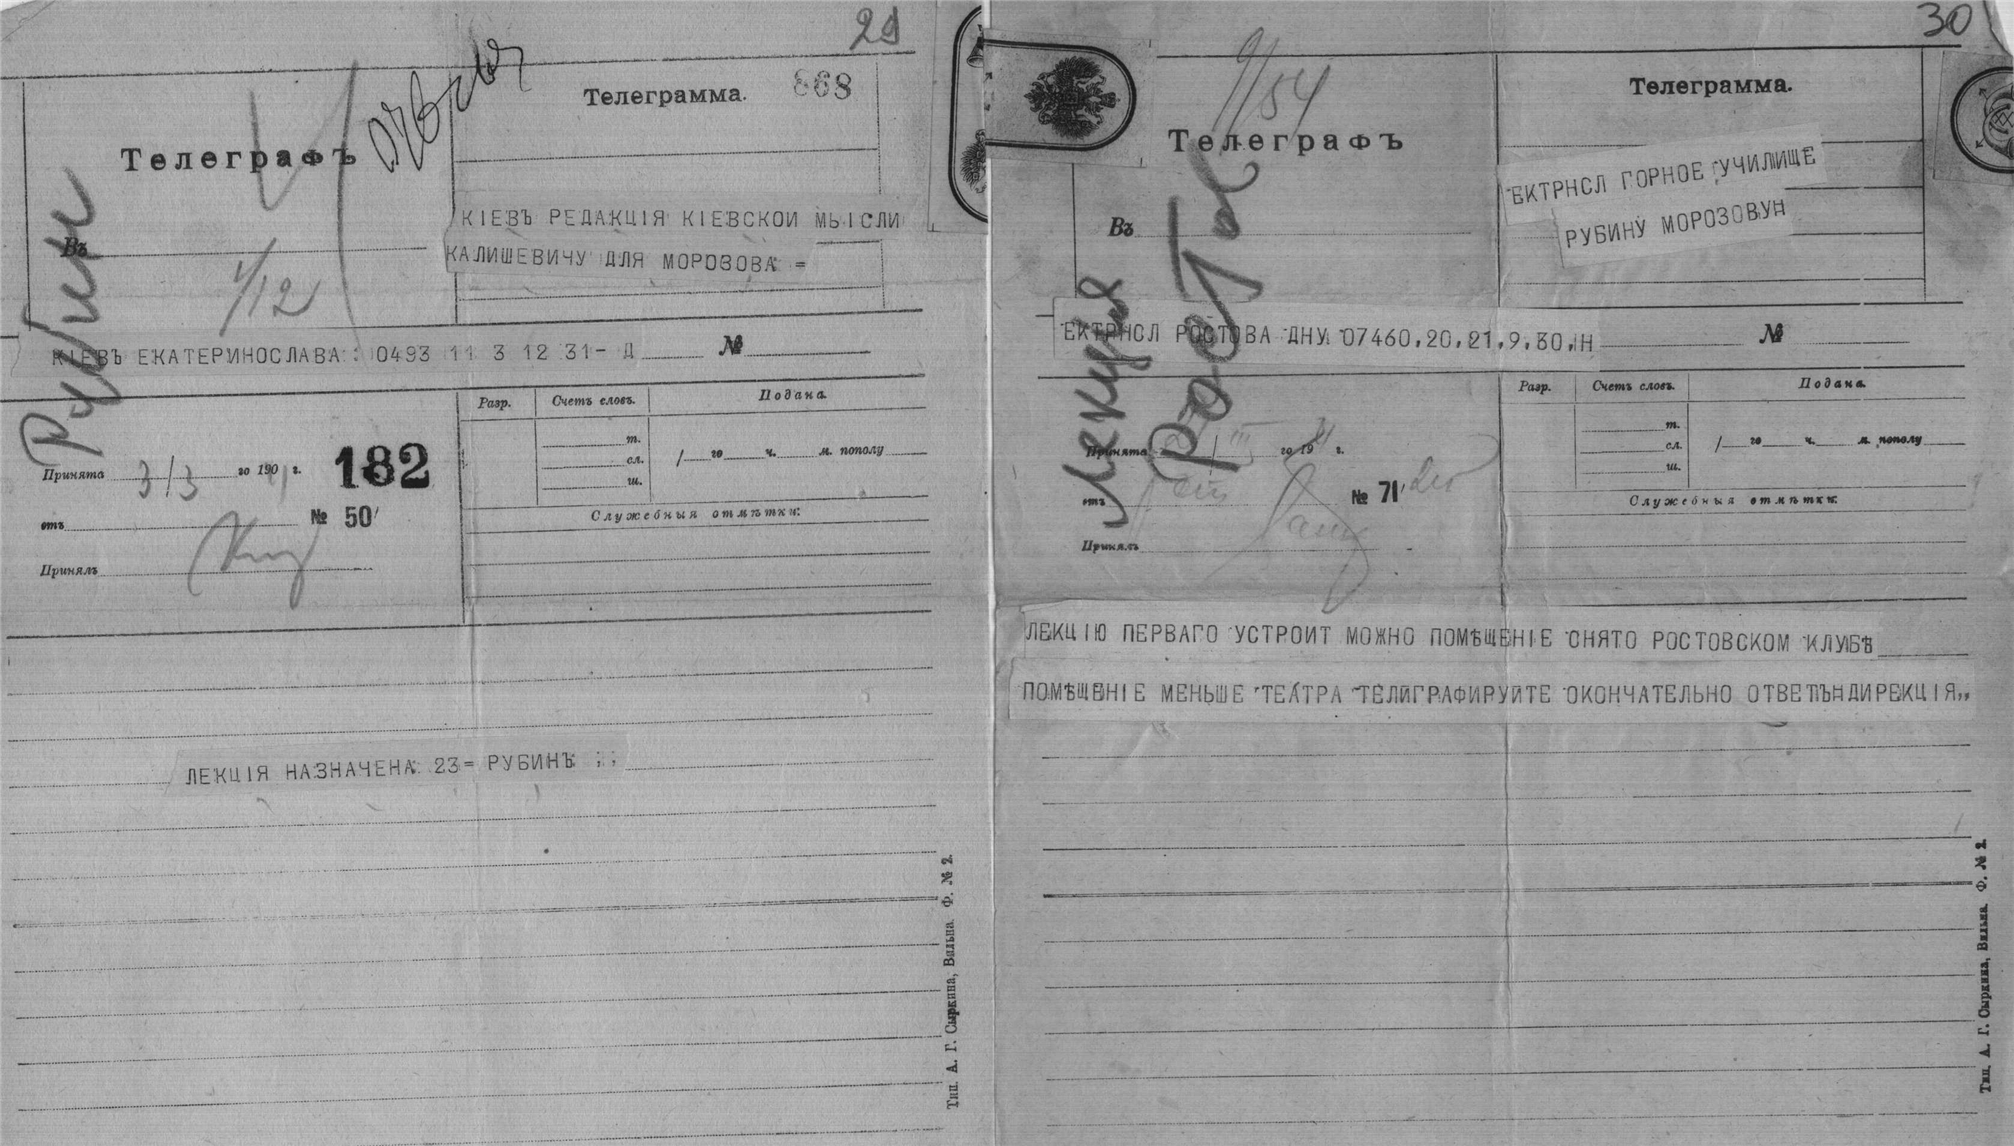 29
868
Телеграмма.
Телеграфъ
Рубин
Въ
1/12
КІЕВЪ РЕДАКЦІЯ КІЕВСКОИ МЫСЛИ
КАЛИШЕВИЧУ ДЛЯ МОРОЗОВА =
КІЕВЪ ЕКАТЕРИНОСЛАВА : 0493 11 3 12 31- Д
№
Разр.
Счетъ словъ.
Подана.
т.
сл.
ш.
/ го ч. м. пополу
Принята 3/3 го 190 г.
182
отъ
№ 50
Служебныя отмѣтки:
Принялъ
ЛЕКЦІЯ НАЗНАЧЕНА 23= РУБИНЪ
Тип. А. Г. Сыркина, Вильна. Ф. № 2.
30
9/54
Телеграмма.
Телеграфъ
ЕКТРНСЛ ГОРНОЕ УЧИЛИЩЕ
РУБИНУ МОРОЗОВУН
Въ
Лекция
Ростов
ЕКТРНСЛ РОСТОВА ДНУ 07460,20,21,9,30,Н
№
Разр.
Счетъ словъ.
Подана.
т.
сл.
ш.
/ го ч. м. пополу
Принята го 19 г.
отъ
№ 71
Служебныя отмѣтки:
Принялъ
ЛЕКЦІЮ ПЕРВАГО УСТРОИТ МОЖНО ПОМѢЩЕНІЕ СНЯТО РОСТОВСКОМ КЛУБѢ
ПОМѢЩЕНІЕ МЕНЬШЕ ТЕАТРА ТЕЛИГРАФИРУЙТЕ ОКОНЧАТЕЛЬНО ОТВЕТЪНДИРЕКЦІЯ,,
Тип. А. Г. Сыркина, Вильна. Ф. № 2.